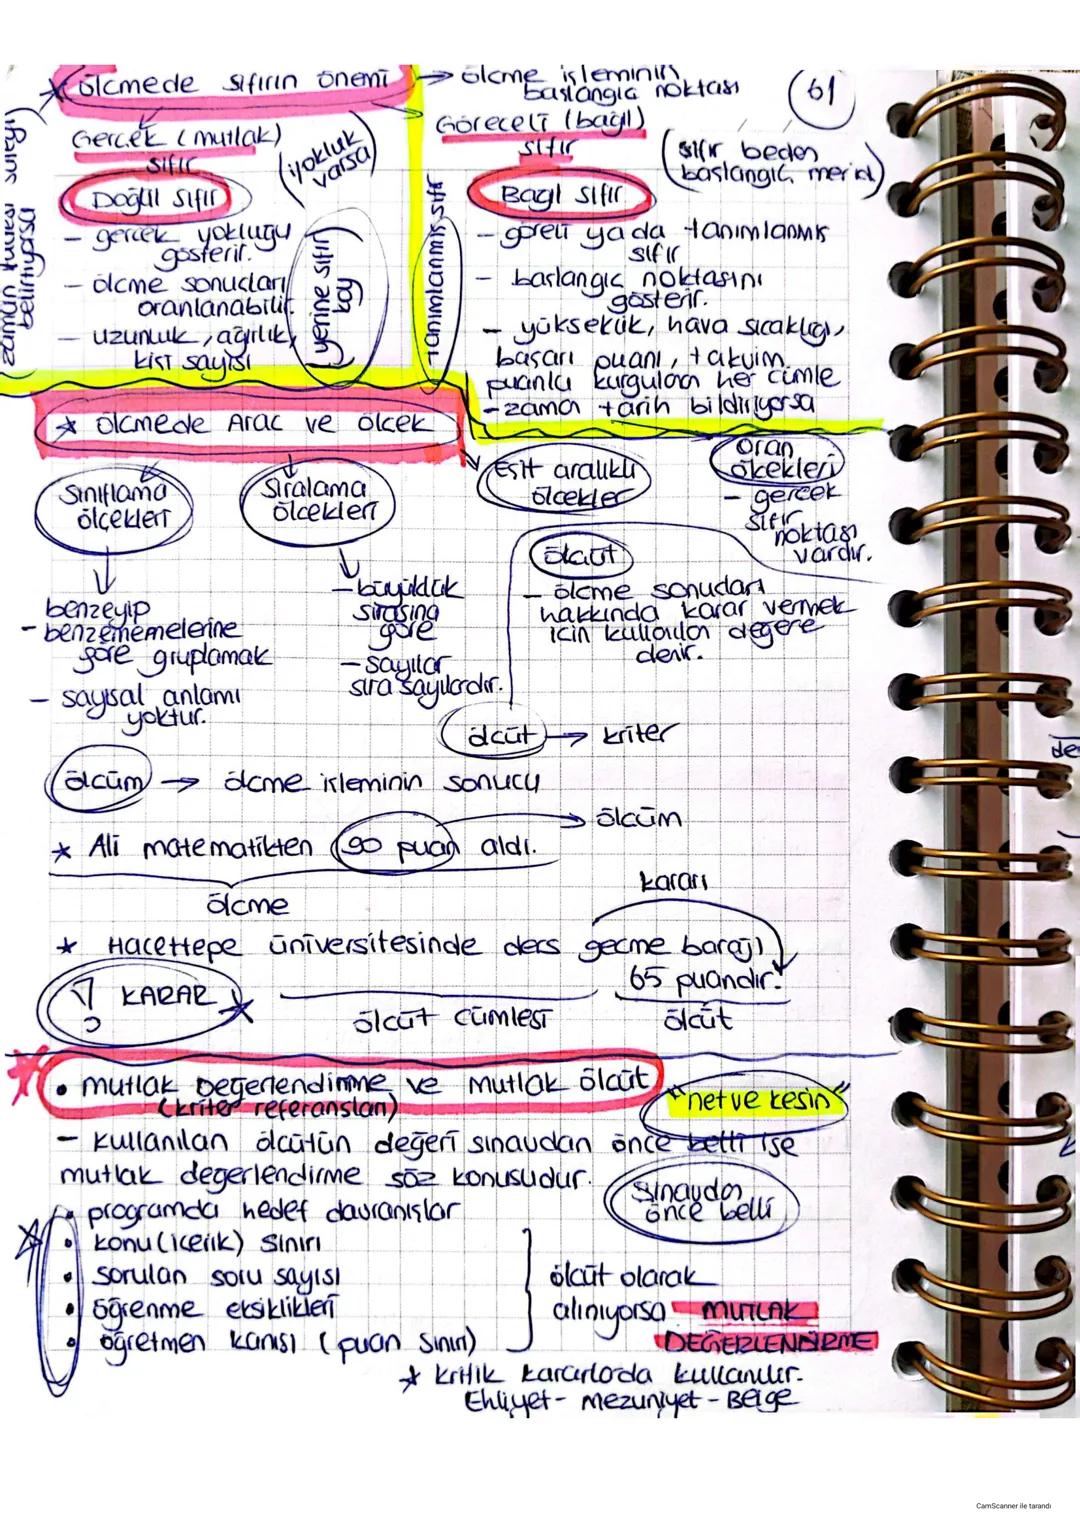 * ölçmede sıfırın önemi → ölçme işleminin
başlangıç noktası
61
Gerçek (mutlak)
sıfır
(yokluk
varsa)
Doğal sıfır
- gerçek yokluğu
gösterir.
- ölçme sonuçları
oranlanabilir.
- uzunluk, ağırlık,
kişi sayısı
(yerine sıfır
koy)
zamanın süreyi
belirtiyorsa
tanımlanmış sıfır
Göreceli (bağıl)
sıfır
(sıfır beden
başlangıç, )
Bagıl sıfır
- göreli ya da tanımlanmış
sıfır
- başlangıç noktasını
gösterir.
- yükseklik, hava sıcaklığı,
başarı puanı, takvim,
puanla kurgulanan her cümle
- zaman tarih bildiriyorsa
* ölçmede Araç ve ölçek
Sınıflama
ölçekleri
Sıralama
ölçekleri
Eşit aralıklı
ölçekler
Oran
ölçekleri
- gerçek
sıfır
noktası
vardır.
benzeyip
- benzememelerine
göre gruplamak
- sayısal anlamı
yoktur.
- büyüklük
sırasına
göre
- sayılar
sıra sayılarıdır.
ölçüt
- ölçme sonuçları
hakkında karar vermek
için kullanılan değere
denir.
ölçüt → kriter
ölçüm → ölçme işleminin sonucu
* Ali matematikten 90 puan aldı. → ölçüm
ölçme
kararı
* Hacettepe üniversitesinde ders geçme barajı
65 puandır.
! KARAR *
ölçüt cümlesi
ölçüt
• mutlak Değerlendirme ve mutlak ölçüt
(kriter referansları)
"net ve kesin"
- kullanılan ölçütün değeri sınavdan önce belli ise
mutlak değerlendirme söz konusudur.
sınavdan
önce belli
• programda hedef davranışlar
• konu (içerik) sınırı
• sorulan soru sayısı
• öğrenme eksiklikleri
• öğretmen kanısı (puan sınırı)
ölçüt olarak
alınıyorsa MUTLAK
DEĞERLENDİRME
* kritik kararlarda kullanılır.
Ehliyet - mezuniyet - Belge
CamScanner ile tarandı